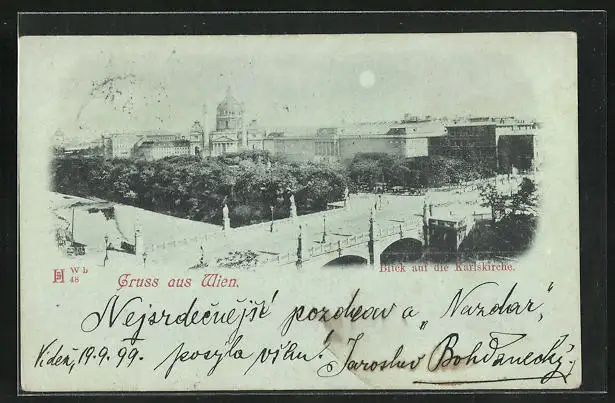 H W b 48 Gruss aus Wien. Blick auf die Karlskirche.
Nejsrdečnější pozdrav a „Nazdar"
Vídeň, 19.9.99. posýla všem! Jaroslav Bohdanecký